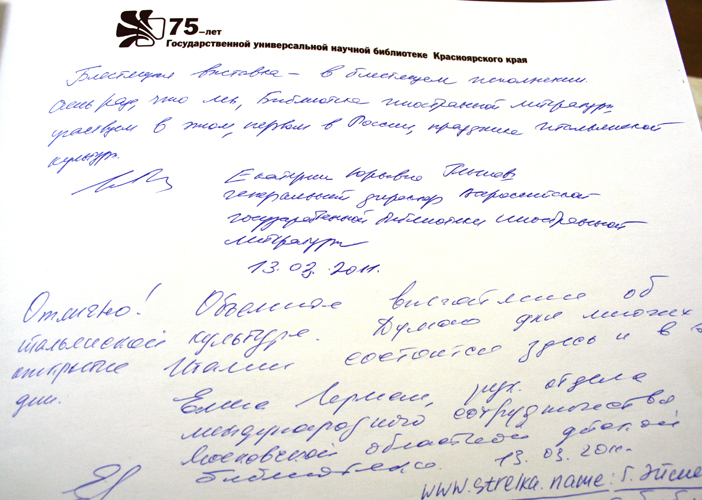 75-лет
Государственной универсальной научной библиотеке Красноярского края
Блестящая выставка – в блестящем исполнении.
Очень рада, что мы, Библиотека иностранной литературы,
участвуем в этом, первом в России, празднике итальянской
культуры.
Екатерина Юрьевна
генеральный директор Всероссийской
государственной библиотеки иностранной
литературы
13.03.2011.
Отлично! Объемное впечатление об
итальянской культуре. Думаю для многих
открытие Италии состоится здесь и в
дни.
Елена рук. отдела
международного сотрудничества
Московской областной детской
библиотеки. 13.03.2011.
www.strelka.name: г.